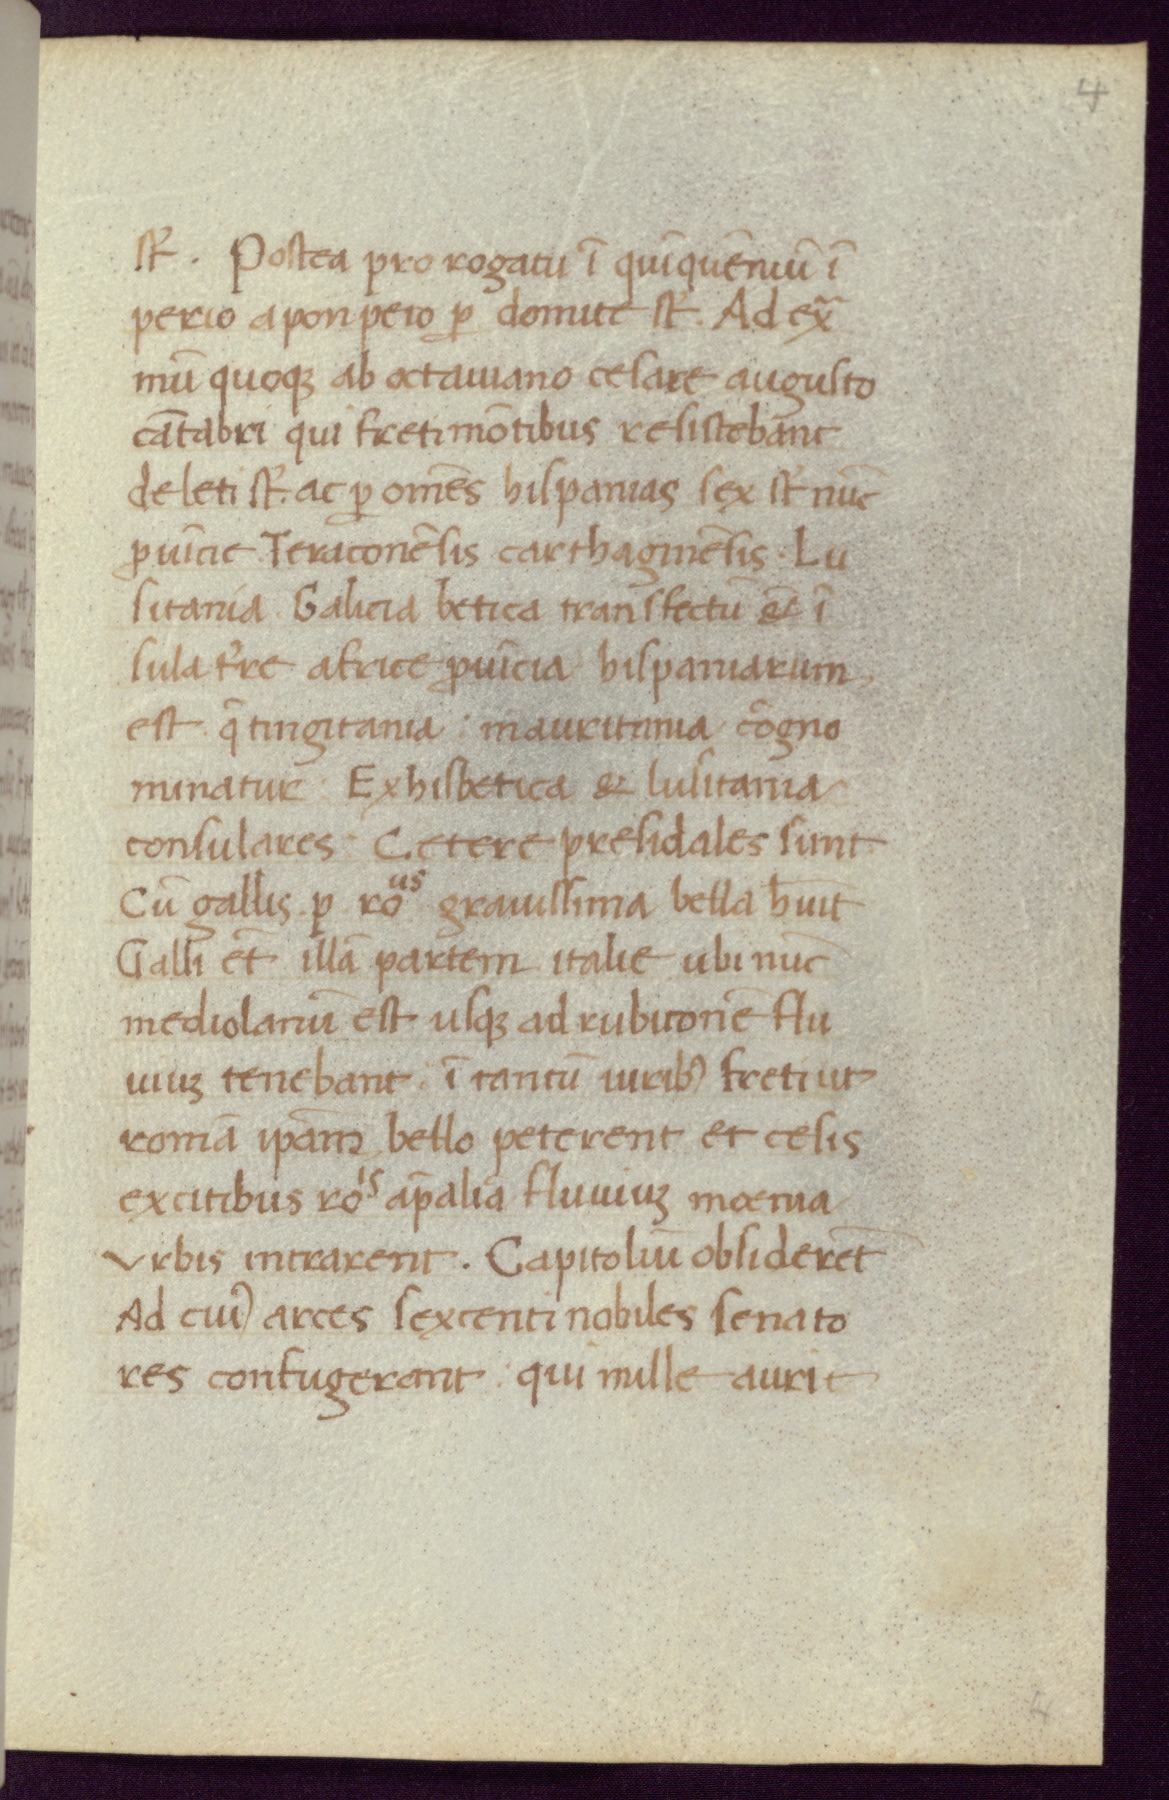 4
sť. Postea pro rogatu ī quīquēniū ī
perio a ponpeio ꝑ domite sť. Ad ex̄
mū quoqꝫ ab octauiano cesare augusto
cātabri qui freti mōtibus resistebant
deleti sť. ac ꝑ omēs hispanias sex sť nūc
ꝓuīcie Teraconēsis carthaginēsis. Lu
sitania. Galicia betica transfectū et ī
sula t're africe ꝓuīcia hispaniarum
est. q̄ tingitania: mauritania cōgno
minatur. Ex his betica & lusitania
consulares. Cetere presidales sunt.
Cū gallis. ꝑ roᵘˢ grauissima bella h̄uit
Galli et̄ illā partem italie ubi nūc
mediolanū est usqꝫ ad rubiconē flu
uiuꝫ tenebant. ī tantū uiribꝰ freti ut
romā ip̄am bello peterent et cesis
excitibus roⁱˢ ap̄ alia fluuiuꝫ moenia
Vrbis intrarent. Capitoliū obsiderēt
Ad cuiꝰ arces sexcenti nobiles senato
res confugerant: qui mille auri t
4